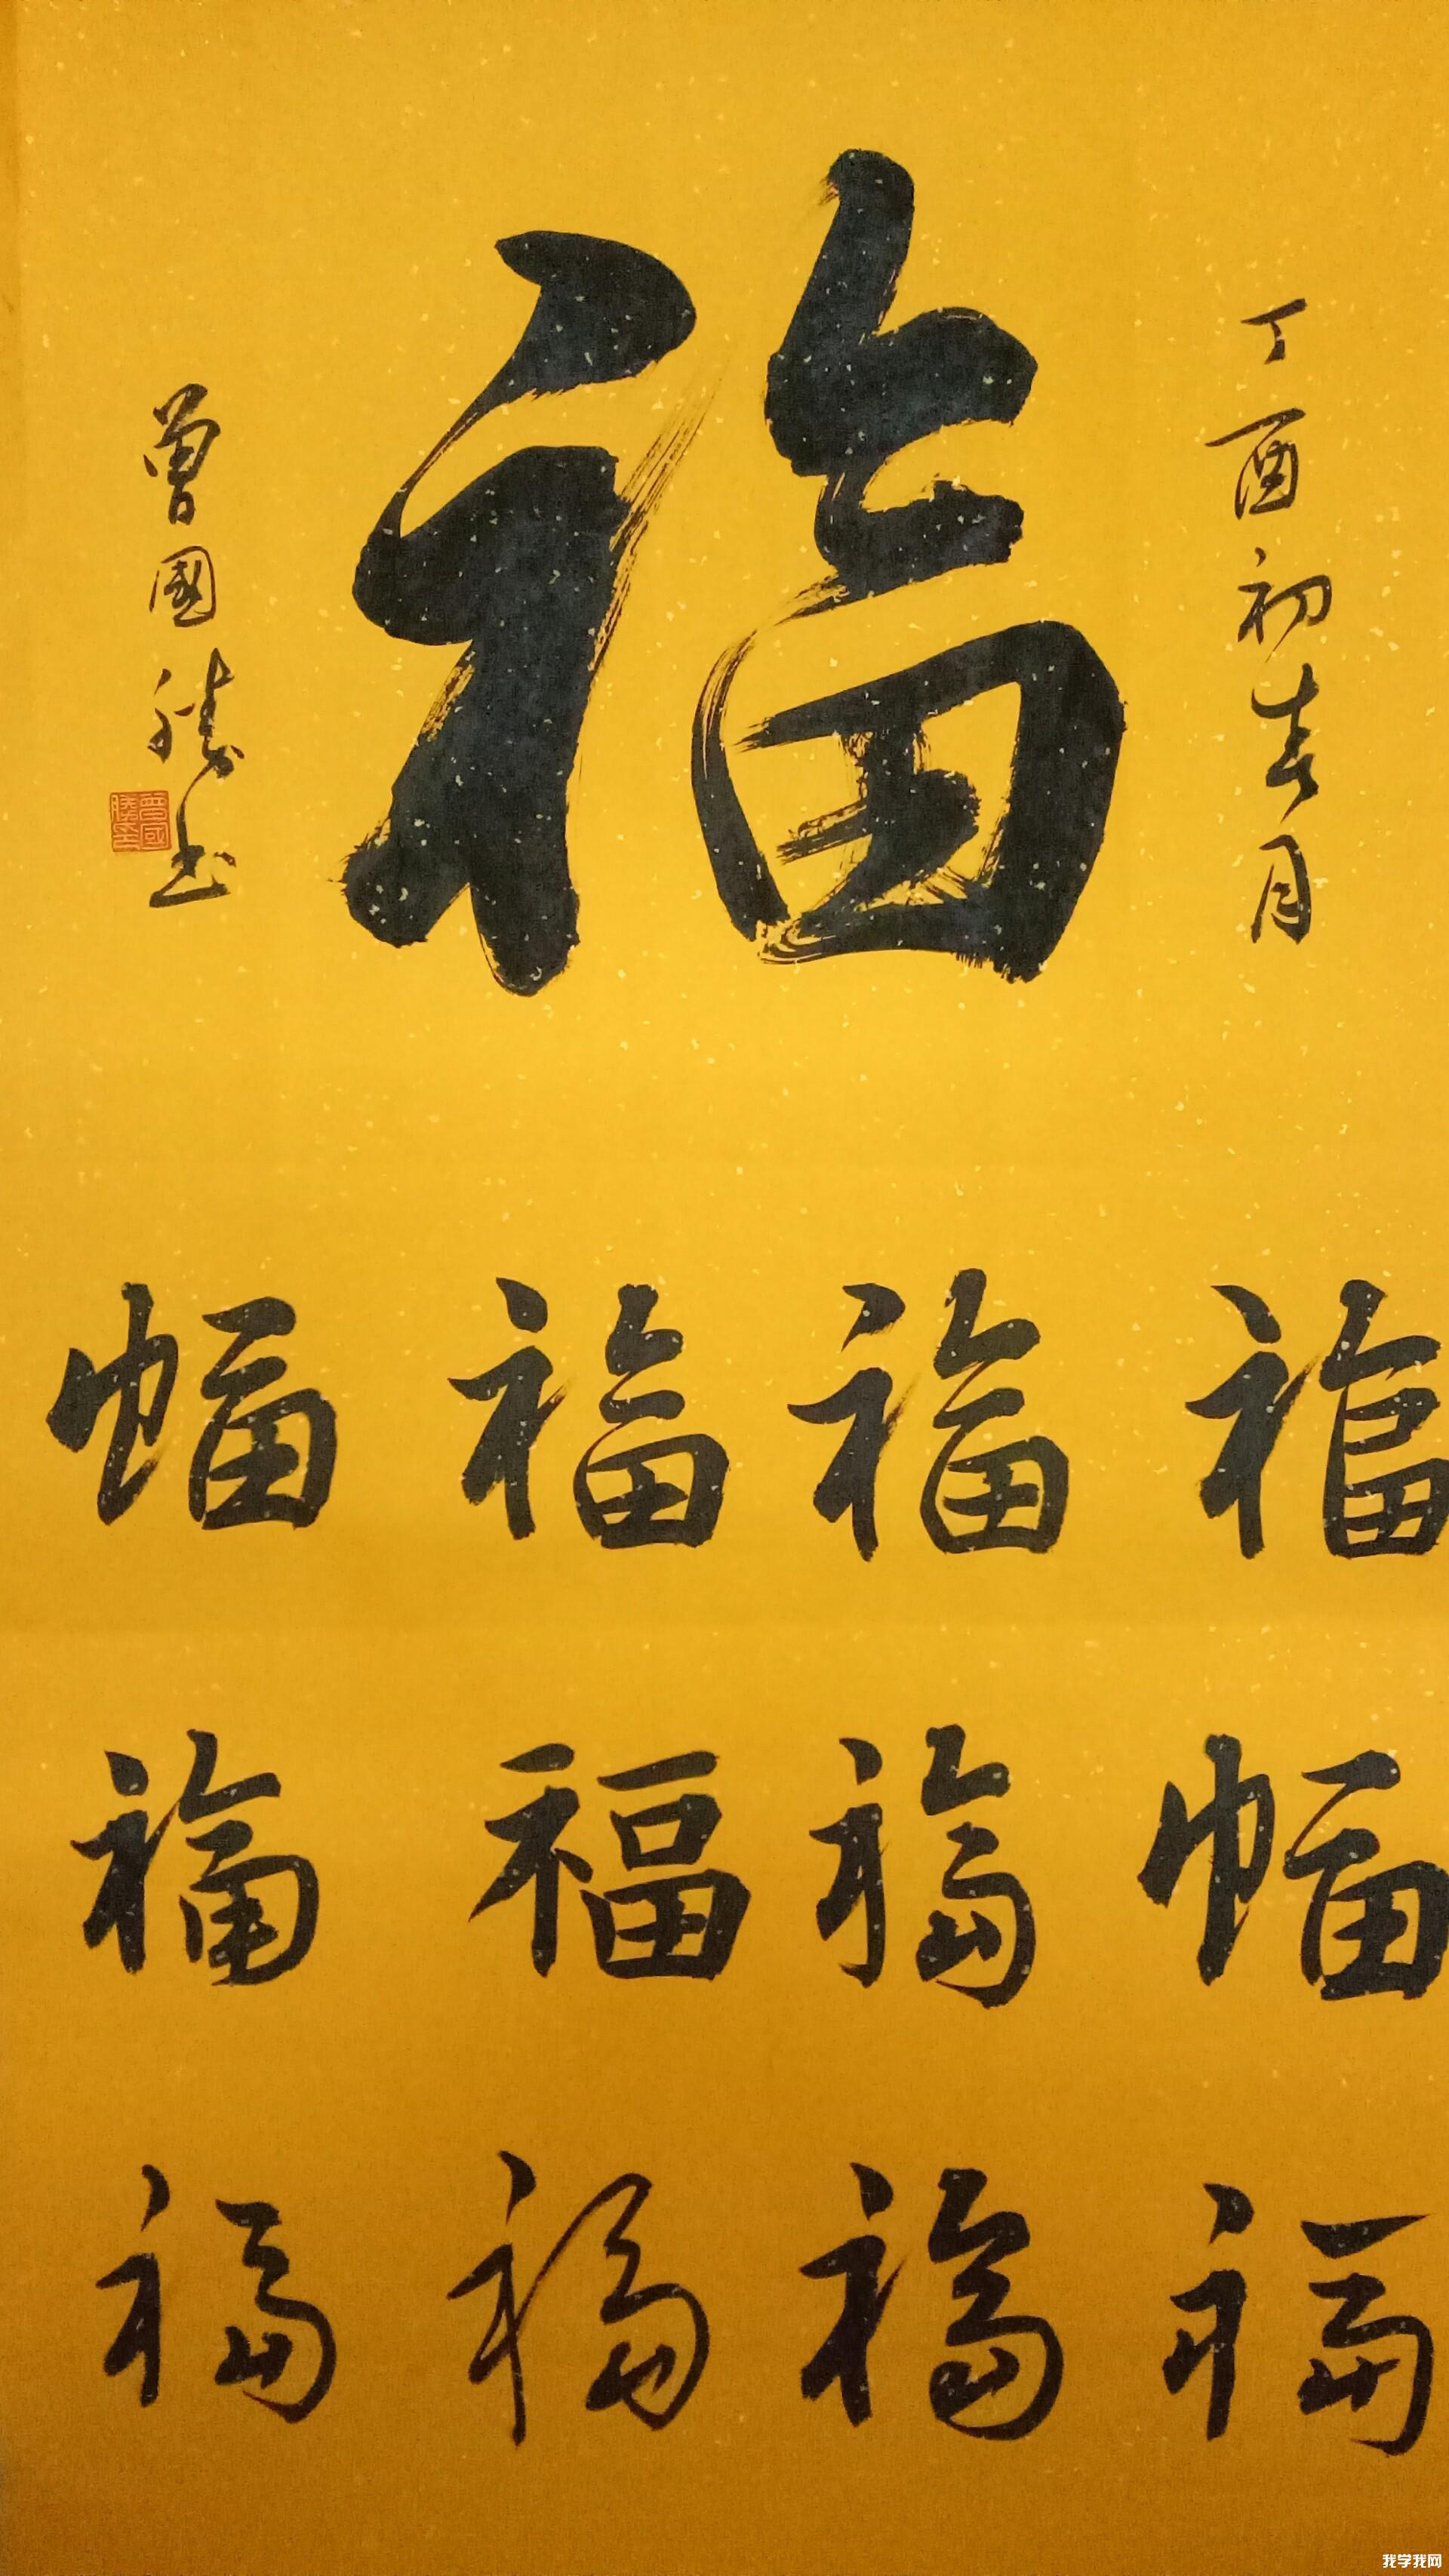 丁酉初春月
福
曾國勝书
曾國勝璽
福福福福
福福福福
福福福福
我学我网